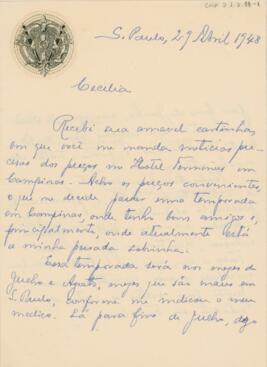 S. Paulo, 29 Abril 1948
Cecilia
Recebi sua amavel cartinha
em que você me manda noticias pre-
cisas dos preços no Hotel Terminus em
Campinas. Acho os preços convenientes,
o que me decide passar uma temporada
em Campinas, onde tenho bons amigos e,
principalmente, onde atualmente está
a minha prezada
Essa temporada será nos mezes de
Julho e Agosto, mezes que são maus em
S. Paulo, conforme me indicou o meu
medico. Lá para fins de Julho,